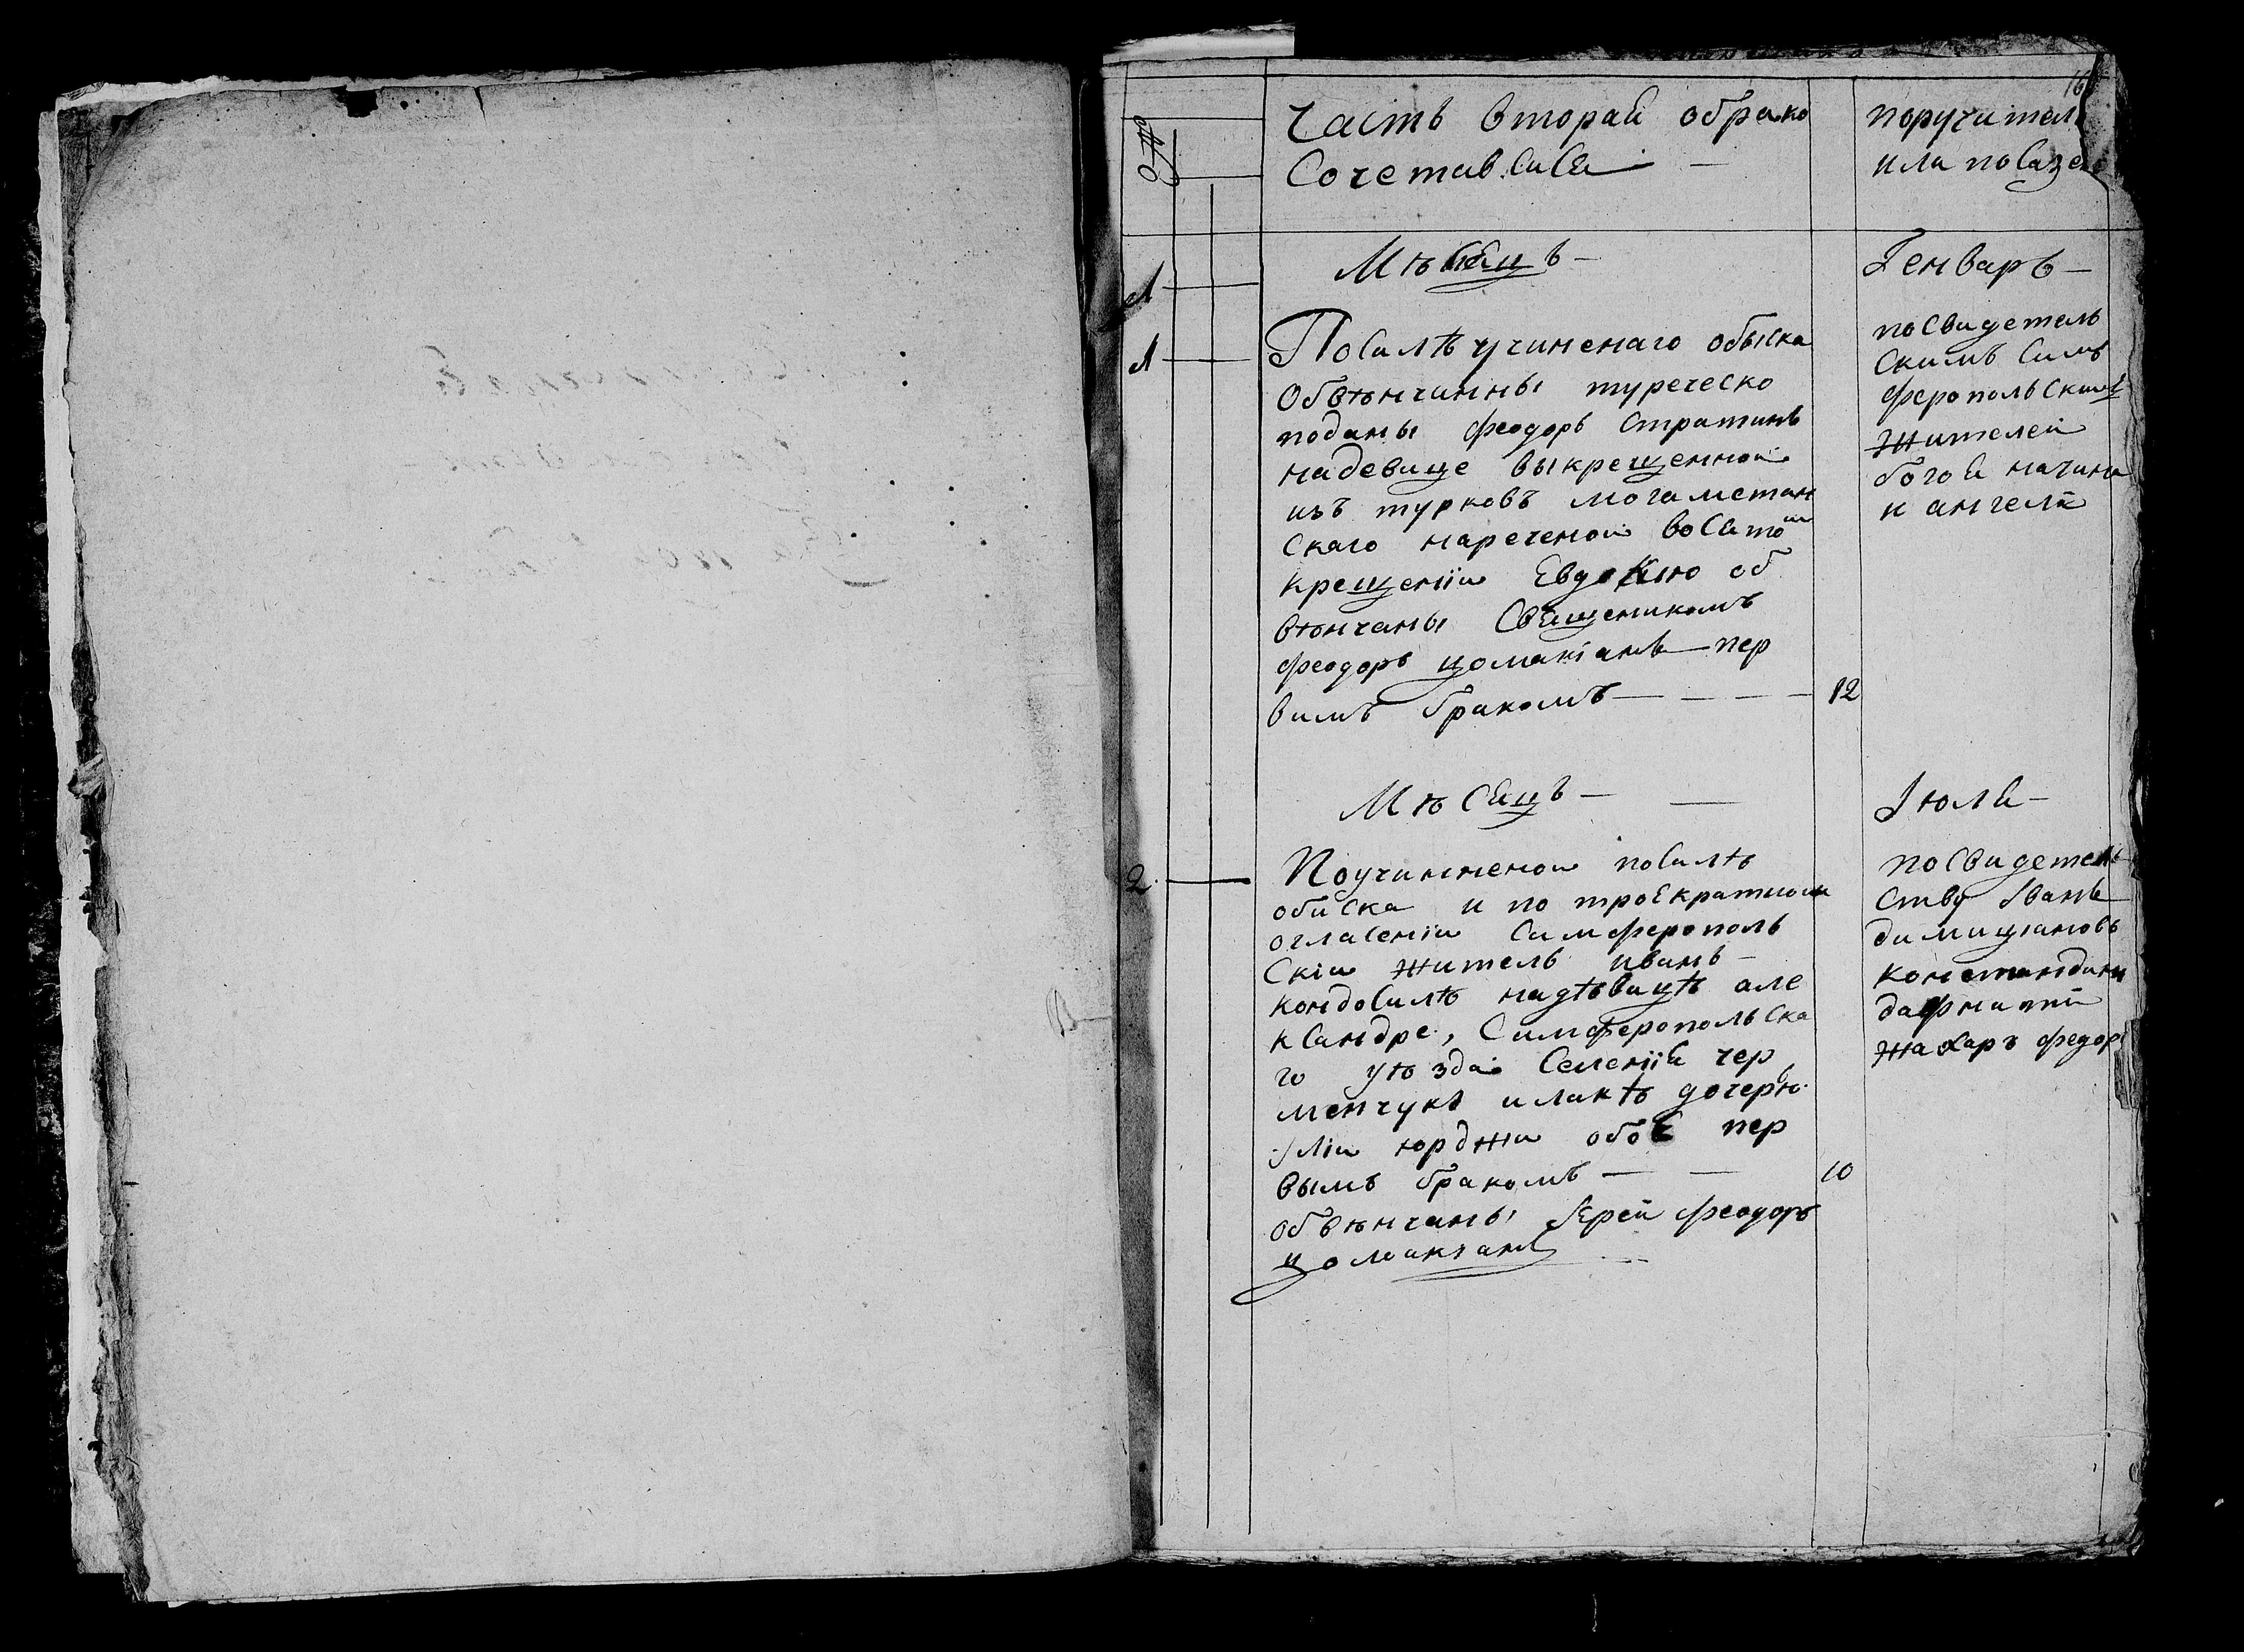 16
часть вторая обрако
Сочетав.сися
поручител
или посаже
Мѣсяцъ
Генваръ
1
1
Посилѣ учиненаго обыска
Обвѣнчинны туреческо
поданы феодоръ Стратинъ
надевице выкрещенной
изъ турковъ могаметан
Скаго нареченой восято
крещенiи Евдокию об
вѣнчаны Священикомъ
феодоръ цомакiанъ пер
вимъ бракомъ
12
посвидетель
Скимъ Симъ
ферополь Ским
жителей
богоя начина
и ангелй
Мѣсяцъ
Iюля
2
Поучинненои посилѣ
обиска и по троекратном
огласенiи Симферополь
Скiи житель иванъ
кондосилѣ надѣвицѣ але
ксандре, Симферопольска
го уѣзда Селенiя чер
менчукѣ илакѣ дочерю
Iлiи юрджи обое пер
вымъ бракомъ
10
обвѣнчаны Iерей феодоръ
цомакианъ
посвидетель
Ству Iванъ
димицiановъ
констандин
дафнипи
жахаръ федор